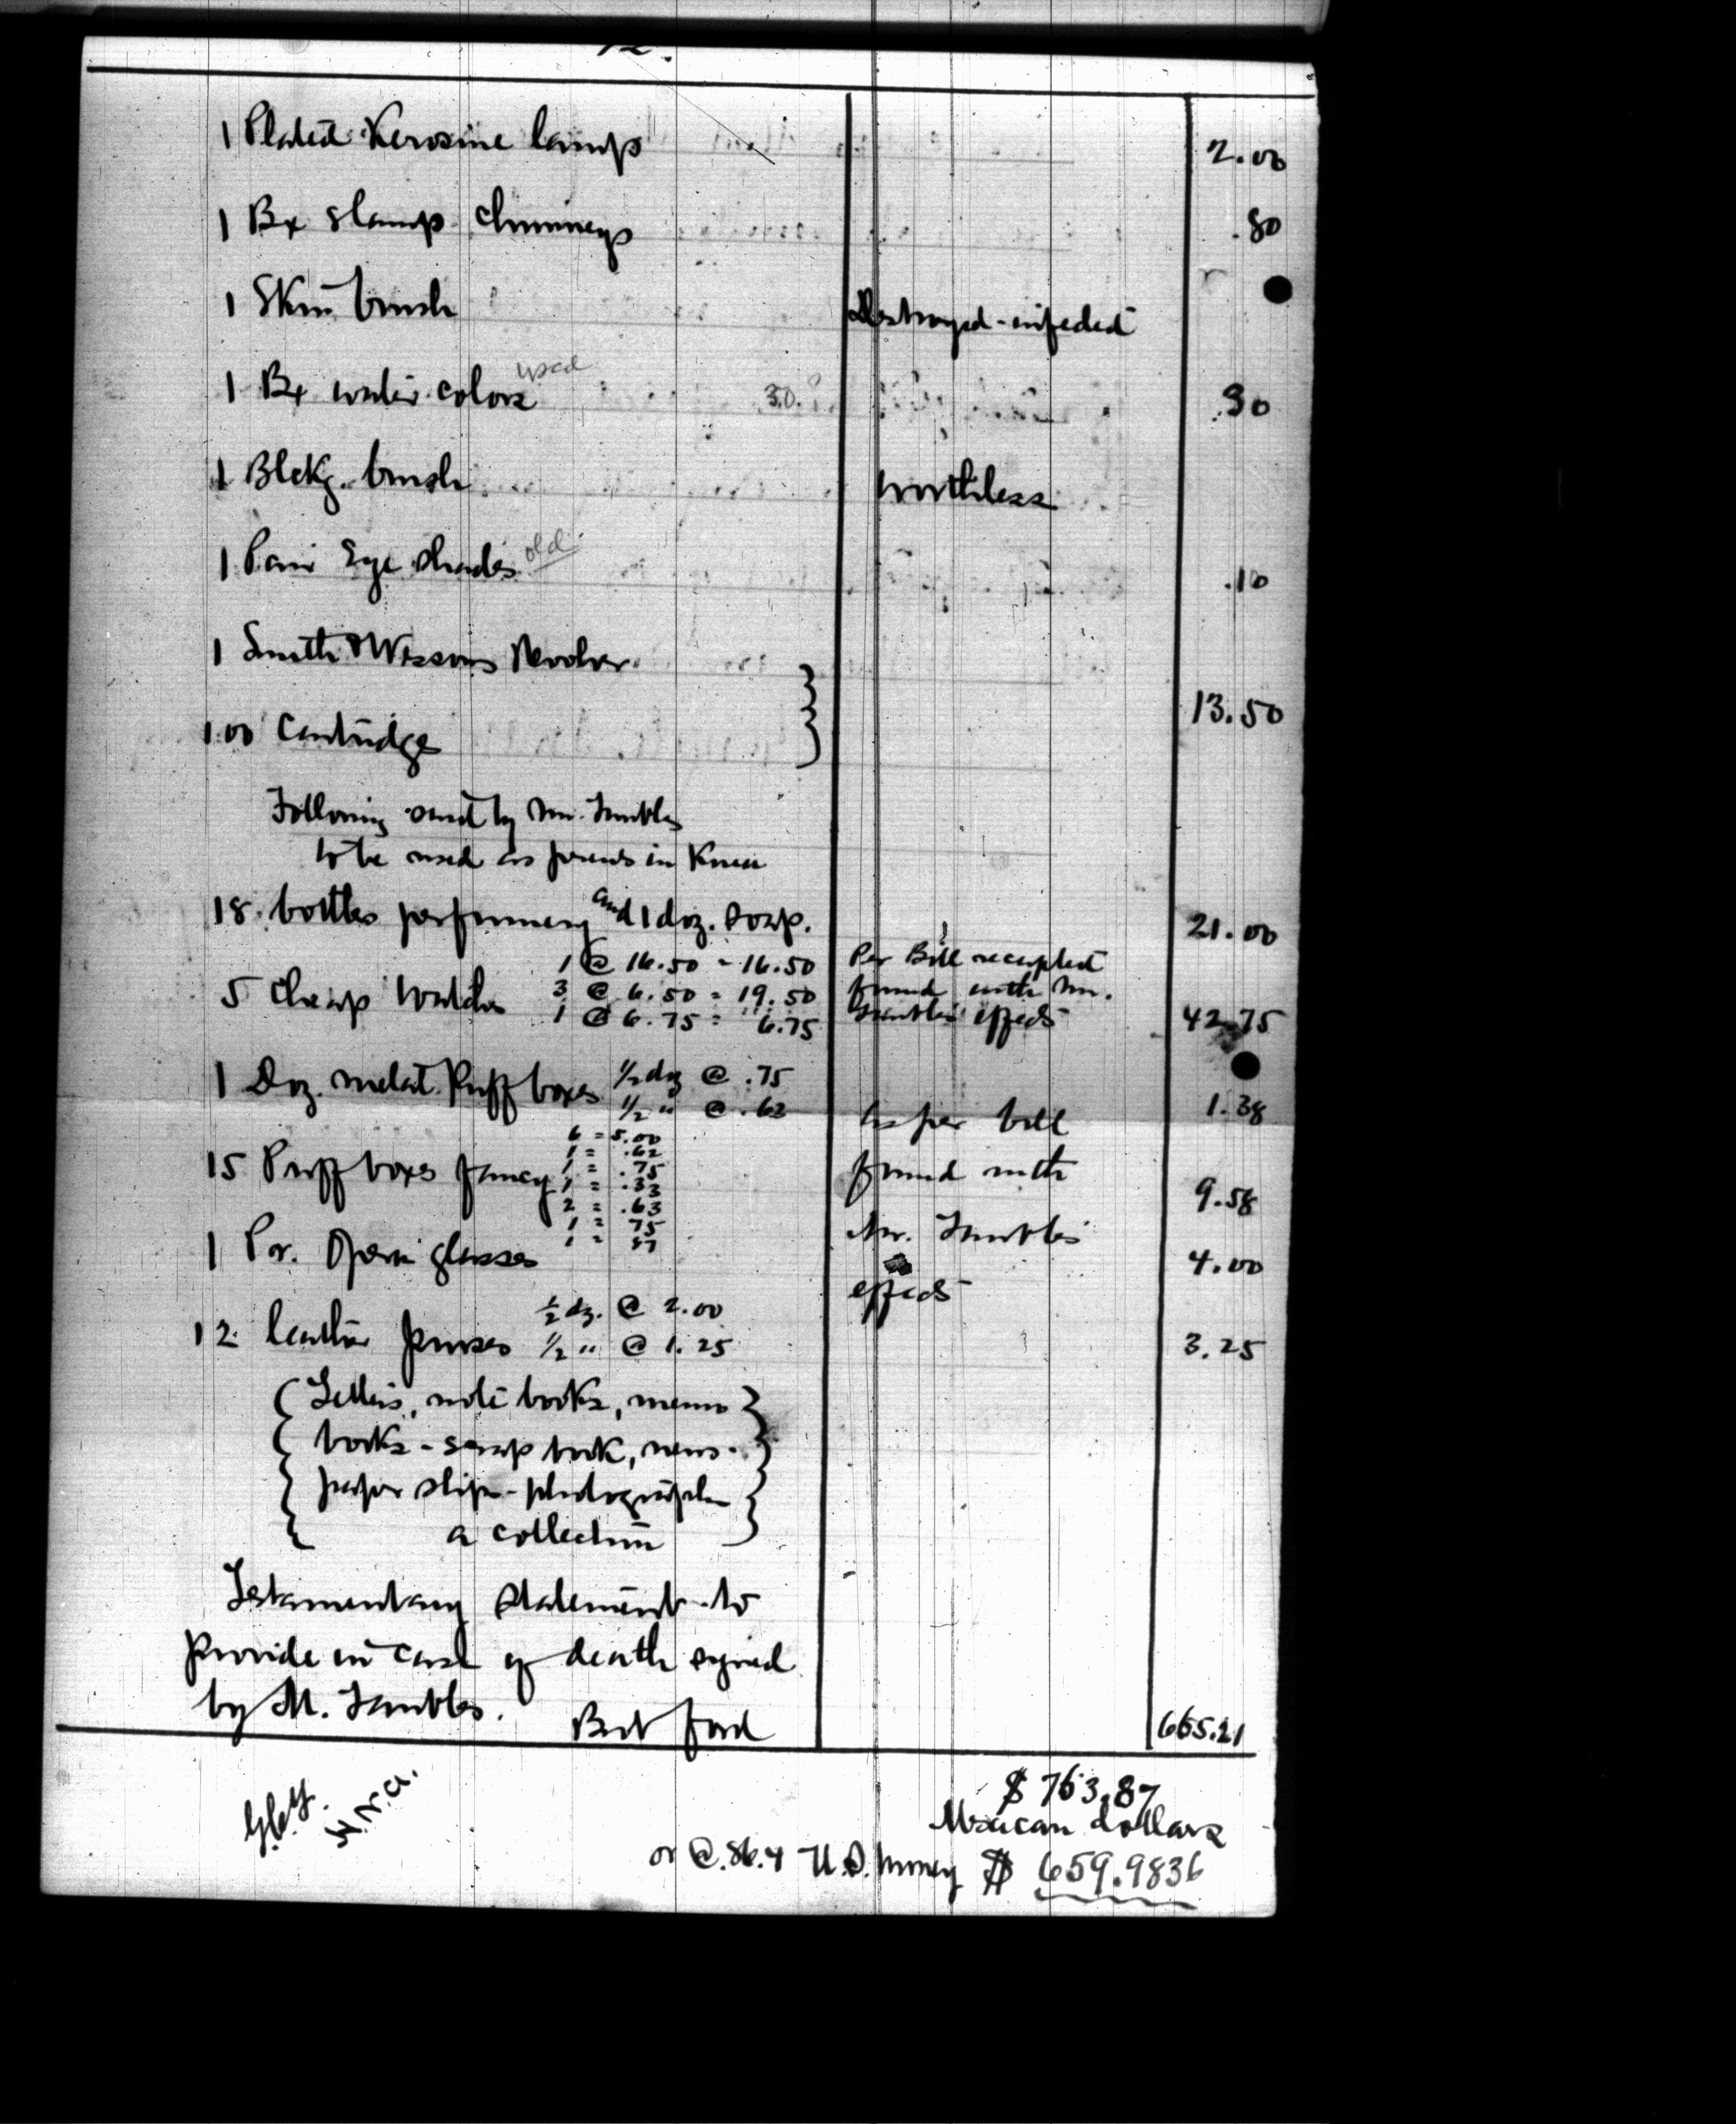 12.
1 Plated Kerosine lamp 2.00
1 Bx lamp chimneys .80
1 Skin brush Destroyed-infected
1 Bx water colors used 30. .30
1 Blckg. brush worthless
1 Pair Eye shades old .10
1 Smith & Wessons Revolver
100 Cartridge 13.50
Following sent by Mr.
to be used as in Korea
18 bottles perfumery and 1 doz. soap. 21.00
1 @ 16.50 - 16.50 Per Bill receipted
5 Cheap Watches 3 @ 6.50 = 19.50 found with Mr.
1 @ 6.75 = 6.75 effects 42.75
1 Doz. metal Puff boxes 1/2 doz @ .75
1/2 " @ .63 1.38
As per bill
6 = 5.00
1 = .62
15 Puff boxes fancy 1 = .75 found with
1 = .33 9.58
2 = .63
1 = 75 Mr.
1 Pr. Opera glasses 1 = 4.00
effects
1/2 dz. @ 2.00
12 leather purses 1/2 " @ 1.25 3.25
Letters, note books, memo
books - scrap book, news-
paper slips - photographs
a collection
Testamentary statement to
provide in case of death signed
by M.
Bert Ford 665.21
$ 763.87
Mexican dollars
or @ .86.4 U.S. money $ 659.9836